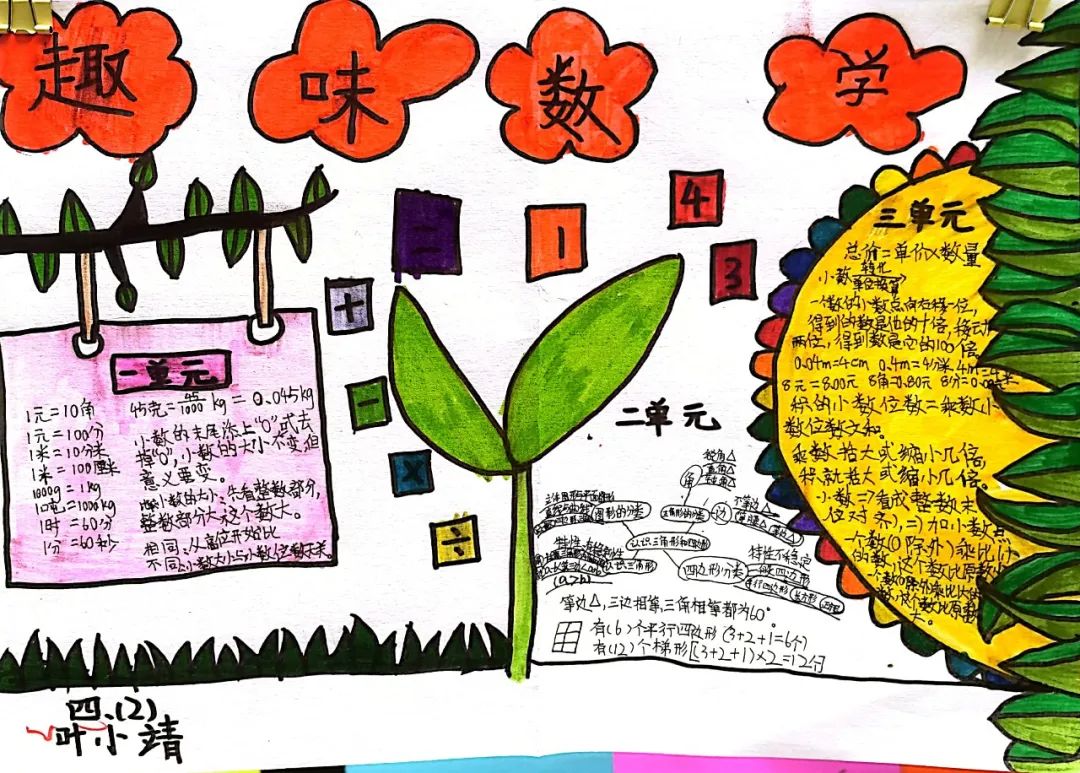 趣味数学
一单元
1元=10角
1元=100分
1米=10分米
1米=100厘米
1000g=1kg
1吨=1000kg
1时=60分
1分=60秒
45克=45/1000 kg=0.045kg
小数的末尾添上"0"或去
掉"0",小数的大小不变,但
意义要变。
小数的大小、先看整数部分,
整数部分大这个数大。
相同,从高位开始比
+
-
×
÷
二
1
4
3
二单元
锐角△
直角△
角
边
不等边△
等边△
图形的分类
三角形的分类
认识三角形和四边形
认识三角形
四边形分类
特性不稳定
四边形
平行四边形
等边△,三边相等,三角相等都为60°
有(6)个平行四边形 (3+2+1=6个)
有(12)个梯形[(3+2+1)×2=12个
三单元
总价=单价×数量
小数 转化 单位换算
一个数的小数点向右移一位,
得到的数是他的十倍,移动
两位,得到数是它的100倍
0.04m=4cm 0.4m=4分米
8元=8.00元 8角=0.80元
积的小数位数=乘数小
数位数之和。
乘数扩大或缩小几倍,
积就扩大或缩小几倍。
小数
看成整数末
位对齐,
加小数点
个数(0除外)乘比1小
的数,这个数比原数小
四.(2)
叶小靖